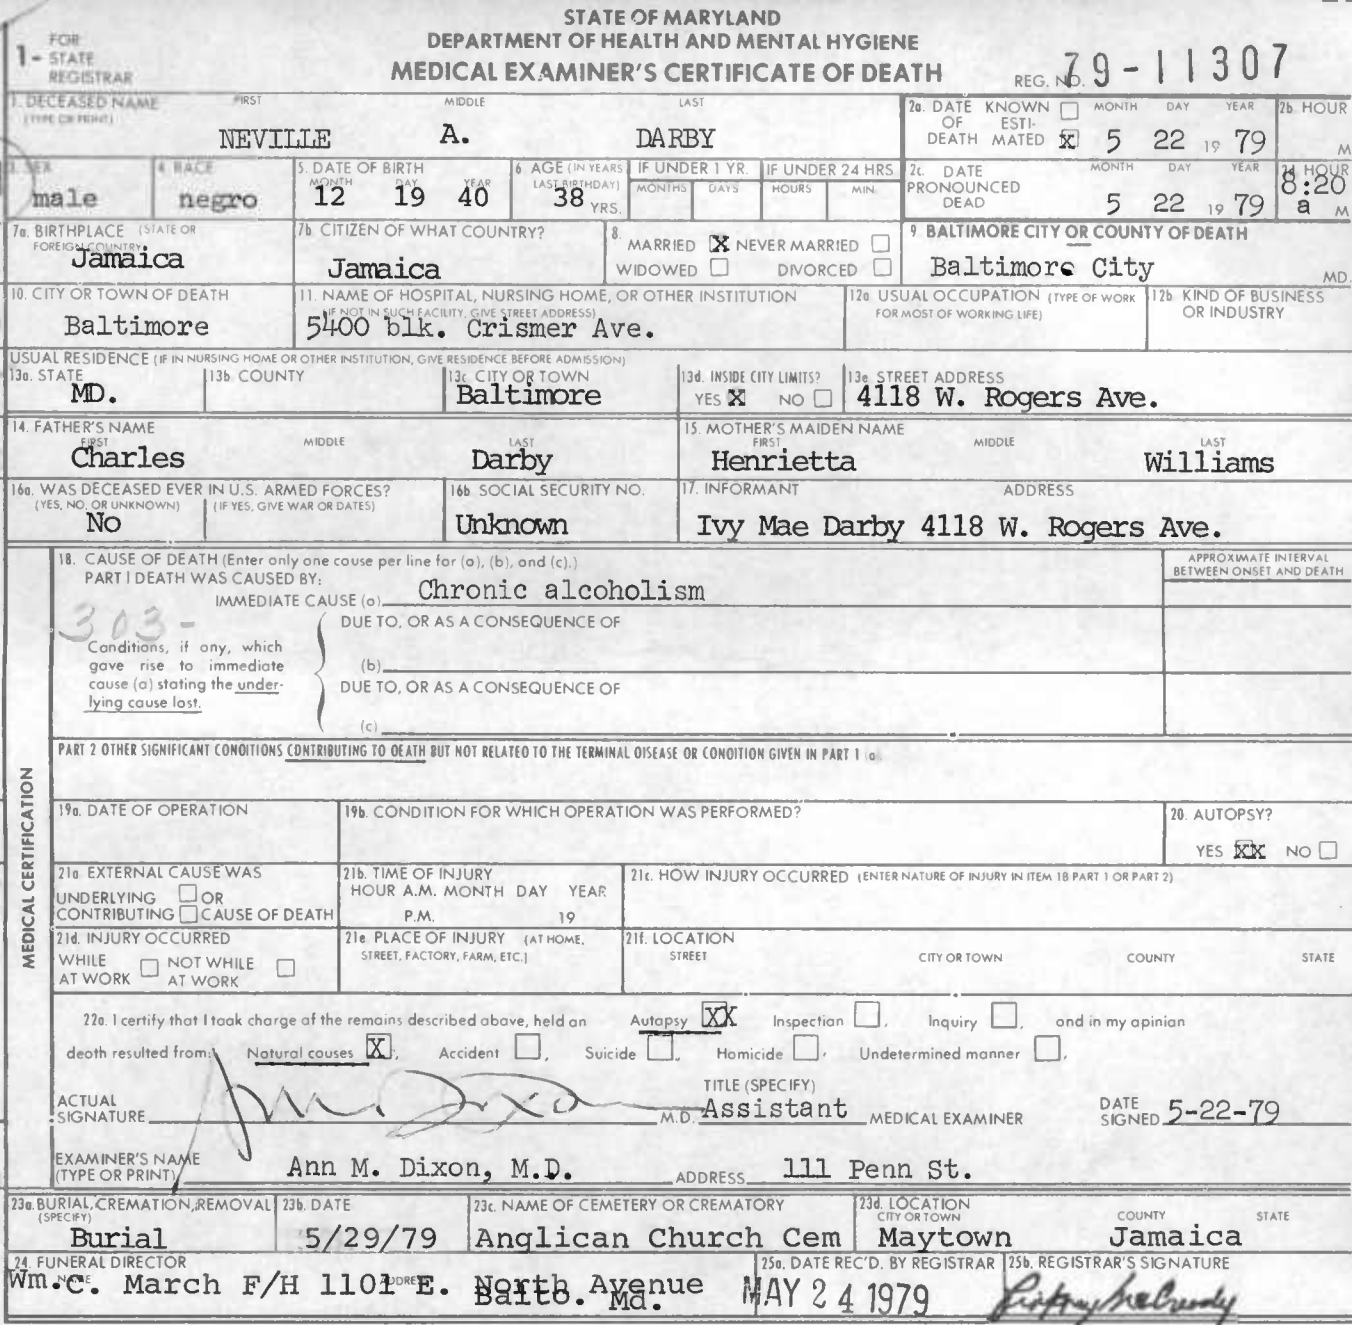 STATE OF MARYLAND
DEPARTMENT OF HEALTH AND MENTAL HYGIENE
MEDICAL EXAMINER'S CERTIFICATE OF DEATH
1- FOR STATE REGISTRAR
REG. NO. 79-11307
1. DECEASED NAME (TYPE OR PRINT) FIRST MIDDLE LAST
NEVILLE A. DARBY
2a. DATE OF DEATH KNOWN ESTIMATED X MONTH DAY YEAR 5 22 19 79
2b. HOUR M
3. SEX male
4. RACE negro
5. DATE OF BIRTH MONTH DAY YEAR 12 19 40
6. AGE (IN YEARS LAST BIRTHDAY) 38 YRS.
IF UNDER 1 YR. MONTHS DAYS
IF UNDER 24 HRS HOURS MIN.
2c. DATE PRONOUNCED DEAD MONTH DAY YEAR 5 22 19 79
2d HOUR 8:20 a M
7a. BIRTHPLACE (STATE OR FOREIGN COUNTRY) Jamaica
7b CITIZEN OF WHAT COUNTRY? Jamaica
8. MARRIED X NEVER MARRIED
WIDOWED DIVORCED
9 BALTIMORE CITY OR COUNTY OF DEATH
Baltimore City MD.
10. CITY OR TOWN OF DEATH
Baltimore
11. NAME OF HOSPITAL, NURSING HOME, OR OTHER INSTITUTION
(IF NOT IN SUCH FACILITY, GIVE STREET ADDRESS)
5400 blk. Crismer Ave.
12a USUAL OCCUPATION (TYPE OF WORK FOR MOST OF WORKING LIFE)
12b KIND OF BUSINESS OR INDUSTRY
USUAL RESIDENCE (IF IN NURSING HOME OR OTHER INSTITUTION, GIVE RESIDENCE BEFORE ADMISSION)
13a. STATE MD.
13b COUNTY
13c CITY OR TOWN Baltimore
13d. INSIDE CITY LIMITS? YES X NO
13e STREET ADDRESS 4118 W. Rogers Ave.
14. FATHER'S NAME FIRST MIDDLE LAST
Charles Darby
15. MOTHER'S MAIDEN NAME FIRST MIDDLE LAST
Henrietta Williams
16a. WAS DECEASED EVER IN U.S. ARMED FORCES?
(YES, NO, OR UNKNOWN) (IF YES, GIVE WAR OR DATES)
No
16b SOCIAL SECURITY NO.
Unknown
17. INFORMANT ADDRESS
Ivy Mae Darby 4118 W. Rogers Ave.
MEDICAL CERTIFICATION
18. CAUSE OF DEATH (Enter only one cause per line for (a), (b), and (c).)
APPROXIMATE INTERVAL BETWEEN ONSET AND DEATH
PART I DEATH WAS CAUSED BY:
IMMEDIATE CAUSE (a) Chronic alcoholism
303-
DUE TO, OR AS A CONSEQUENCE OF
Conditions, if any, which gave rise to immediate cause (a) stating the underlying cause last.
(b)
DUE TO, OR AS A CONSEQUENCE OF
(c)
PART 2 OTHER SIGNIFICANT CONDITIONS CONTRIBUTING TO DEATH BUT NOT RELATED TO THE TERMINAL DISEASE OR CONDITION GIVEN IN PART 1 (a)
19a. DATE OF OPERATION
19b. CONDITION FOR WHICH OPERATION WAS PERFORMED?
20. AUTOPSY?
YES XX NO
21a EXTERNAL CAUSE WAS
UNDERLYING OR
CONTRIBUTING CAUSE OF DEATH
21b. TIME OF INJURY
HOUR A.M. MONTH DAY YEAR
P.M. 19
21c. HOW INJURY OCCURRED (ENTER NATURE OF INJURY IN ITEM 18 PART 1 OR PART 2)
21d. INJURY OCCURRED
WHILE AT WORK NOT WHILE AT WORK
21e PLACE OF INJURY (AT HOME, STREET, FACTORY, FARM, ETC.)
21f. LOCATION
STREET CITY OR TOWN COUNTY STATE
22a. I certify that I took charge of the remains described above, held an Autopsy XX Inspection, Inquiry, and in my opinion
death resulted from: Natural causes X, Accident, Suicide, Homicide, Undetermined manner,
ACTUAL SIGNATURE Ann Dixon M.D.
TITLE (SPECIFY) Assistant MEDICAL EXAMINER
DATE SIGNED 5-22-79
EXAMINER'S NAME (TYPE OR PRINT) Ann M. Dixon, M.D. ADDRESS 111 Penn St.
23a. BURIAL, CREMATION, REMOVAL (SPECIFY) Burial
23b. DATE 5/29/79
23c. NAME OF CEMETERY OR CREMATORY Anglican Church Cem
23d. LOCATION CITY OR TOWN COUNTY STATE
Maytown Jamaica
24. FUNERAL DIRECTOR NAME ADDRESS
Wm. C. March F/H 1101 E. North Avenue
Balto. Md.
25a. DATE REC'D. BY REGISTRAR MAY 24 1979
25b. REGISTRAR'S SIGNATURE